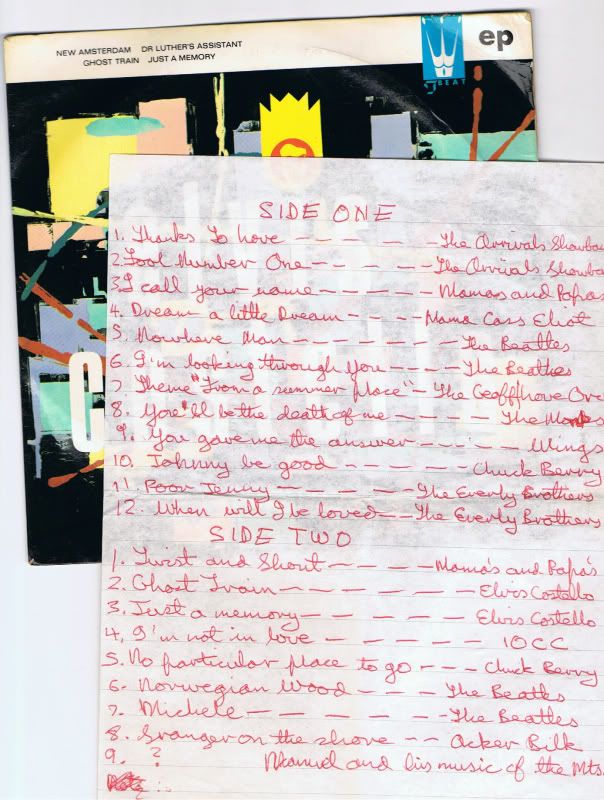 NEW AMSTERDAM DR LUTHER'S ASSISTANT
GHOST TRAIN JUST A MEMORY
ep
F BEAT
SIDE ONE
1. Thanks to love - - - - - The Arrivals Showba
2. Fool Number One - - - - - The Arrivals Showba
3. I call your name - - - - - Mamas and Papas
4. Dream a little Dream - - - - Mama Cass Eliot
5. Nowhere Man - - - - - - - The Beatles
6. I'm looking through you - - - - The Beatles
7. Theme "From a summer place" - The Geoff Love Orc
8. You'll be the death of me - - - - The Monks
9. You gave me the answer - - - - Wings
10. Johnny be good - - - - - Chuck Berry
11. Poor Jenny - - - - - - The Everly Brothers
12. When will I be loved - - The Everly Brothers
SIDE TWO
1. Twist and Shout - - - - - Mama's and Papa's
2. Ghost Train - - - - - - - Elvis Costello
3. Just a memory - - - - - - Elvis Costello
4. I'm not in love - - - - - - 10CC
5. No particular place to go - - - Chuck Berry
6. Norwegian Wood - - - The Beatles
7. Michele - - - - - - The Beatles
8. Stranger on the shore - - Acker Bilk
9. ? Manuel and his music of the Mts.